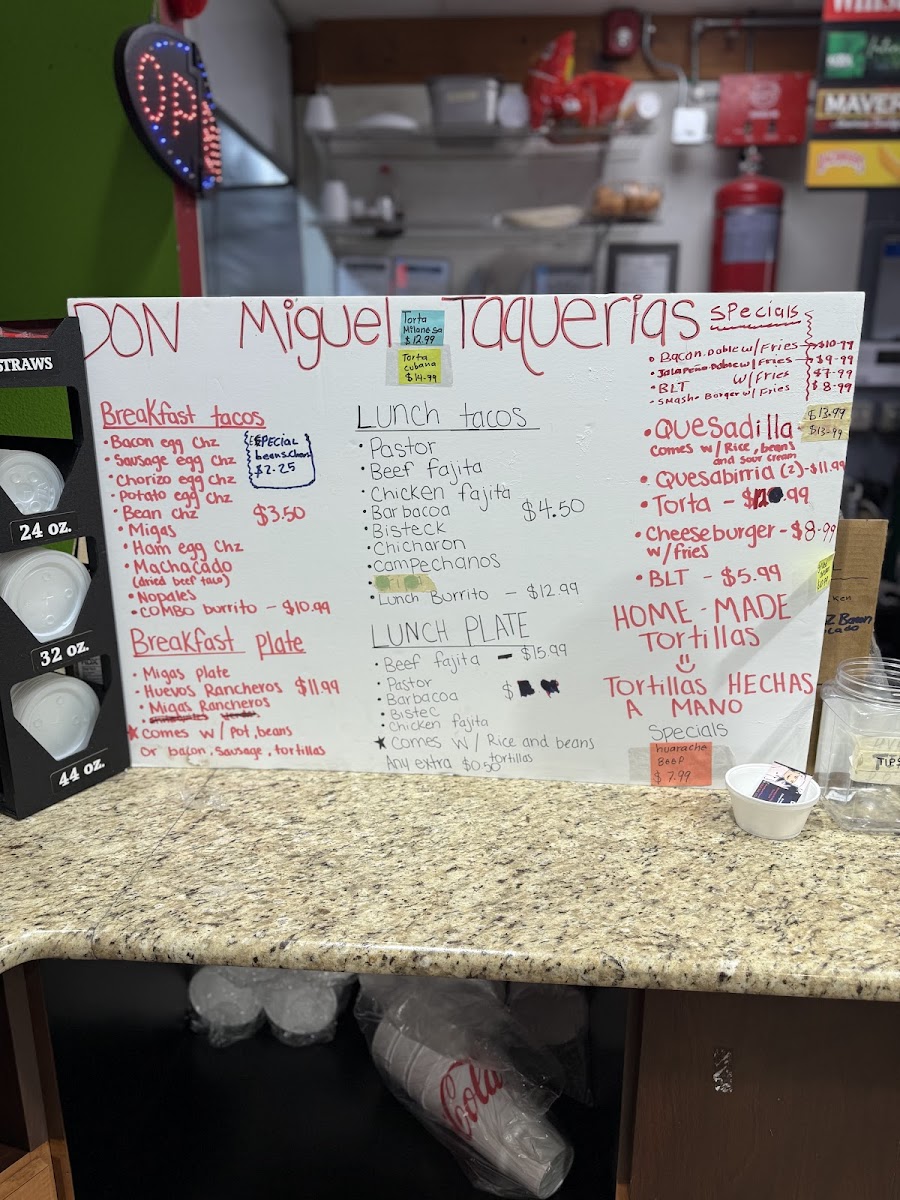 OPEN
MAVER
STRAWS
24 oz.
32 oz.
44 oz.
DON Miguel Taquerias
Torta
Milanesa
$12.99
Torta
cubana
$14.99
Breakfast tacos
• Bacon egg chz
• Sausage egg chz
• Chorizo egg chz
• Potato egg chz
• Bean chz
• Migas
• Ham egg chz
• Machacado
(dried beef taco)
• Nopales
• COMBO burrito - $10.99
$3.50
SPECIAL
$2.25
Breakfast Plate
• Migas plate
• Huevos Rancheros $11.99
• Migas Rancheros
★ comes w/ pot, beans
or bacon, sausage, tortillas
Lunch tacos
• Pastor
• Beef fajita
• Chicken fajita
• Barbacoa
• Bisteck
• Chicharon
• Campechanos
$4.50
• Lunch Burrito - $12.99
LUNCH PLATE
• Beef fajita - $15.99
• Pastor
• Barbacoa $
• Bistec
• Chicken fajita
★ comes w/ Rice and beans
tortillas
Any extra $0.50
Specials
• Bacon Doble w/ Fries → $10-99
• Jalapeño Doble w/ Fries → $9-99
• BLT w/ Fries $7-99
• Smash Burger w/ Fries $8-99
• Quesadilla $13.99
comes w/ Rice, beans $13-99
and sour cream
• Quesabirria (2) - $11.99
• Torta - $ .99
• Cheeseburger - $8-99
w/ fries
• BLT - $5.99
HOME-MADE
Tortillas
Tortillas HECHAS
A MANO
Specials
huarache
BEEF
$7.99
TIPS
Cola